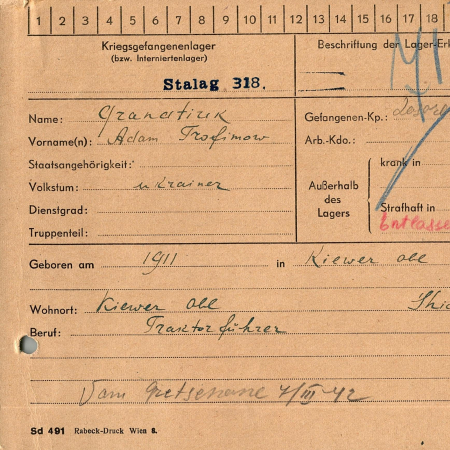 1 2 3 4 5 6 7 8 9 10 11 12 13 14 15 16 17 18
Kriegsgefangenenlager
(bzw. Interniertenlager)
Beschriftung der Lager-Er
Stalag 318.
Name:
Gefangenen-Kp.:
Vorname(n): Adam Trofimow
Arb.-Kdo.:
Staatsangehörigkeit:
krank in
Volkstum: Ukrainer
Außerhalb
des
Lagers
Dienstgrad:
Strafhaft in
Entlasse
Truppenteil:
Geboren am 1911 in Kiewer obl
Wohnort: Kiewer obl
Beruf: Traktorführer
Vom 4/III 42
Sd 491 Rabeck-Druck Wien 8.